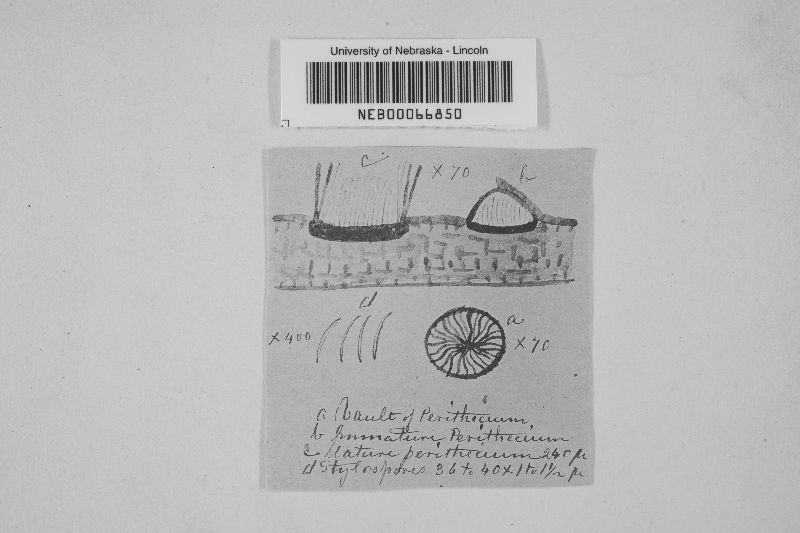 University of Nebraska - Lincoln
NEB00066850
c
X 70
b
d
X 400
a
X 70
a Vault of Perithecium
b Immature Perithecium
c Mature perithecium 240 µ
d Stylospores 36 to 40 X 1 to 1½ µ